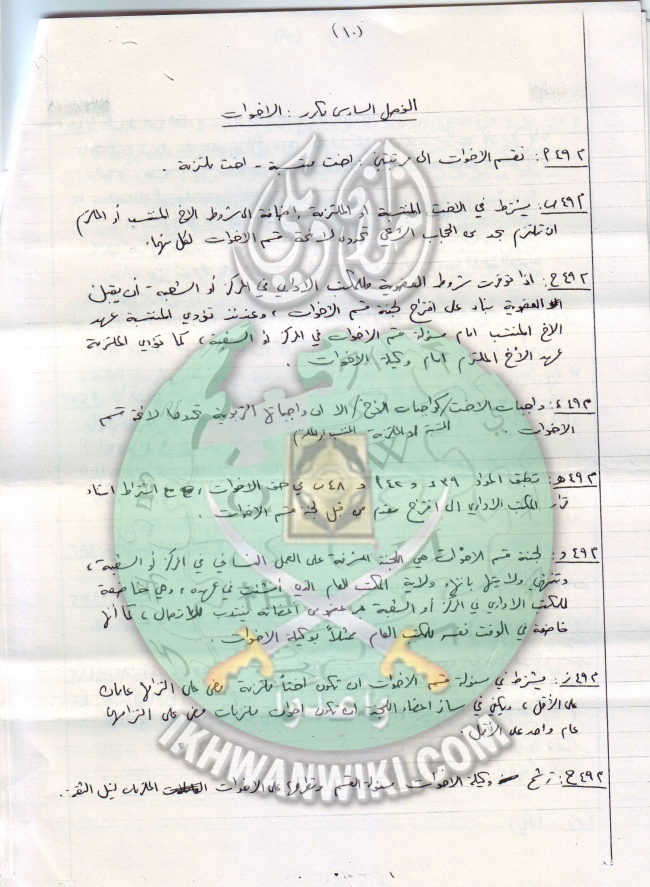 (١٠)
الفصل السادس مكرر : الاخوات
م٤٩ أ : تقسم الاخوات الى مرتبتين : اخت منتسبة - اخت ملتزمة .
م٤٩ ب : يشترط في الاخت المنتسبة او الملتزمة اضافة الى شروط الاخ المنتسب أو الملتزم
ان تلتزم بحد من الحجاب الشرعي تحدده لائحة قسم الاخوات لكل منها .
م٤٩ ج : اذا توفرت شروط العضوية فللمكتب الاداري في المركز أو الشعبة - أن يقبل
العضوية بناء على اقتراح لجنة قسم الاخوات ، وعندئذ تؤدي المنتسبة عهد
الاخ المنتسب امام مسئولة قسم الاخوات في المركز أو الشعبة ، كما تؤدي الملتزمة
عهد الأخ الملتزم امام وكيلة الاخوات .
م٤٩ د : واجبات الاخت / كواجبات الاخ / الا ان واجباتها التربوية تحددها لائحة قسم
الاخوات . المنتسبة او الملتزمة المنتسب او الملتزم
م٤٩ هـ : تطبق المواد ٣٩ د و ٤٢ أ و ٤٨ ب في حق الاخوات مع اشتراط استناد
قرار المكتب الاداري الى اقتراح مقدم من قبل لجنة قسم الاخوات .
م٤٩ و : لجنة قسم الاخوات هي اللجنة المشرفة على العمل النسائي في المركز أو الشعبة ،
وتنتهي ولايتها بانتهاء ولاية المكتب العام الذي انشئت في عهده ، وهي خاضعة
للمكتب الاداري في المركز أو الشعبة عضو من أعضائه منتدب للاتصال ، كما أنها
خاضعة في الوقت نفسه للمكتب العام ممثلاً بوكيلة الاخوات .
م٤٩ ز : يشترط في مسئولة قسم الاخوات ان تكون اختاً ملتزمة مضى على التزامها عامان
على الأقل ، ويكفي في سائر اعضاء اللجنة ان تكون اخوات ملتزمات مضى على التزامها
عام واحد على الأقل .
م٤٩ ح : ترشح وكيلة الاخوات مسئولة القسم وتطرح على الاخوات الملتزمات لنيل الثقة .
وأعدوا
IKHWANWIKI.COM